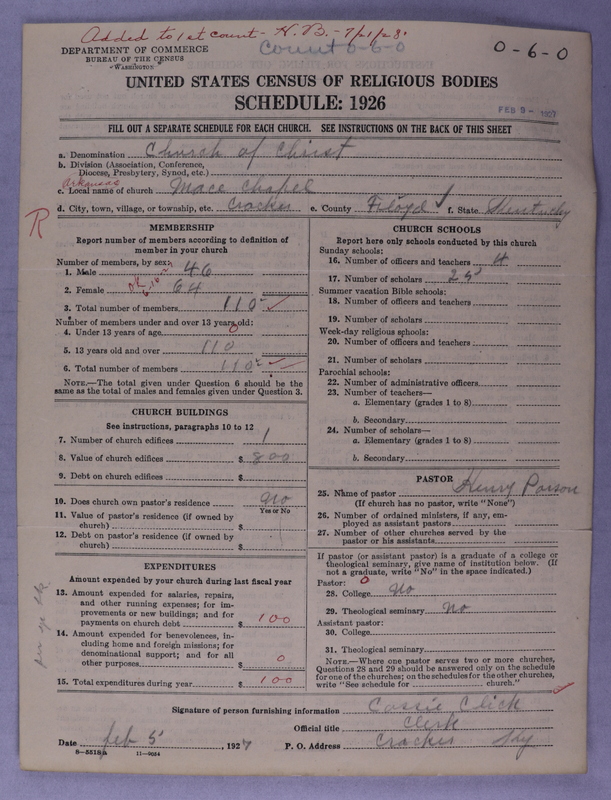 Added to 1st count - H.B. - 7/21/28.
Count 0-6-0
0-6-0
DEPARTMENT OF COMMERCE
BUREAU OF THE CENSUS
WASHINGTON
UNITED STATES CENSUS OF RELIGIOUS BODIES
SCHEDULE: 1926
FEB 9 - 1927
FILL OUT A SEPARATE SCHEDULE FOR EACH CHURCH. SEE INSTRUCTIONS ON THE BACK OF THIS SHEET
a. Denomination Church of Christ
b. Division (Association, Conference,
Diocese, Presbytery, Synod, etc.)
Arkansas
c. Local name of church Mace Chapel
d. City, town, village, or township, etc. Cracker e. County Floyd f. State Kentucky
R
MEMBERSHIP
Report number of members according to definition of
member in your church
Number of members, by sex:
1. Male 46
2. Female 64
3. Total number of members 110
Number of members under and over 13 years old:
4. Under 13 years of age 0
5. 13 years old and over 110
6. Total number of members 110
NOTE.—The total given under Question 6 should be the
same as the total of males and females given under Question 3.
CHURCH BUILDINGS
See instructions, paragraphs 10 to 12
7. Number of church edifices 1
8. Value of church edifices $ 800
9. Debt on church edifices $
10. Does church own pastor's residence No
Yes or No
11. Value of pastor's residence (if owned by
church) $
12. Debt on pastor's residence (if owned by
church) $
EXPENDITURES
Amount expended by your church during last fiscal year
13. Amount expended for salaries, repairs,
and other running expenses; for im-
provements or new buildings; and for
payments on church debt $ 100
14. Amount expended for benevolences, in-
cluding home and foreign missions; for
denominational support; and for all
other purposes $ 0
15. Total expenditures during year $ 100
CHURCH SCHOOLS
Report here only schools conducted by this church
Sunday schools:
16. Number of officers and teachers 4
17. Number of scholars 25
Summer vacation Bible schools:
18. Number of officers and teachers
19. Number of scholars
Week-day religious schools:
20. Number of officers and teachers
21. Number of scholars
Parochial schools:
22. Number of administrative officers
23. Number of teachers—
a. Elementary (grades 1 to 8)
b. Secondary
24. Number of scholars—
a. Elementary (grades 1 to 8)
b. Secondary
PASTOR
25. Name of pastor Henry Parson
(If church has no pastor, write "None")
26. Number of ordained ministers, if any, em-
ployed as assistant pastors
27. Number of other churches served by the
pastor or his assistants
If pastor (or assistant pastor) is a graduate of a college or
theological seminary, give name of institution below. (If
not a graduate, write "No" in the space indicated.)
Pastor: 0
28. College No
29. Theological seminary No
Assistant pastor:
30. College
31. Theological seminary
NOTE.—Where one pastor serves two or more churches,
Questions 28 and 29 should be answered only on the schedule
for one of the churches; on the schedules for the other churches,
write "See schedule for church."
Signature of person furnishing information Cassie Click
Official title Clerk
Date Feb 5, 1927 P. O. Address Cracker Ky
8—5518a 11—9684